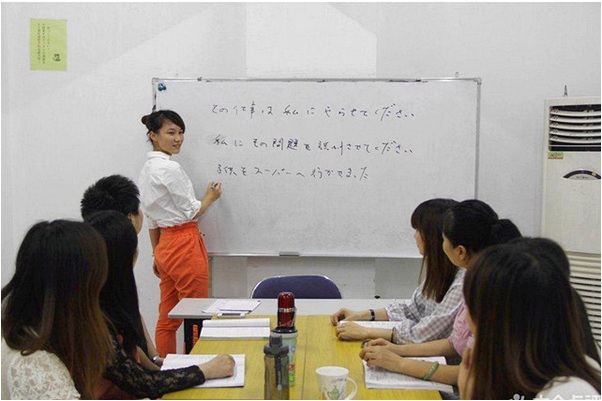 その仕事は私にやらせてください
私にその問題を説明させてください
子供をスーパーへ行かせました